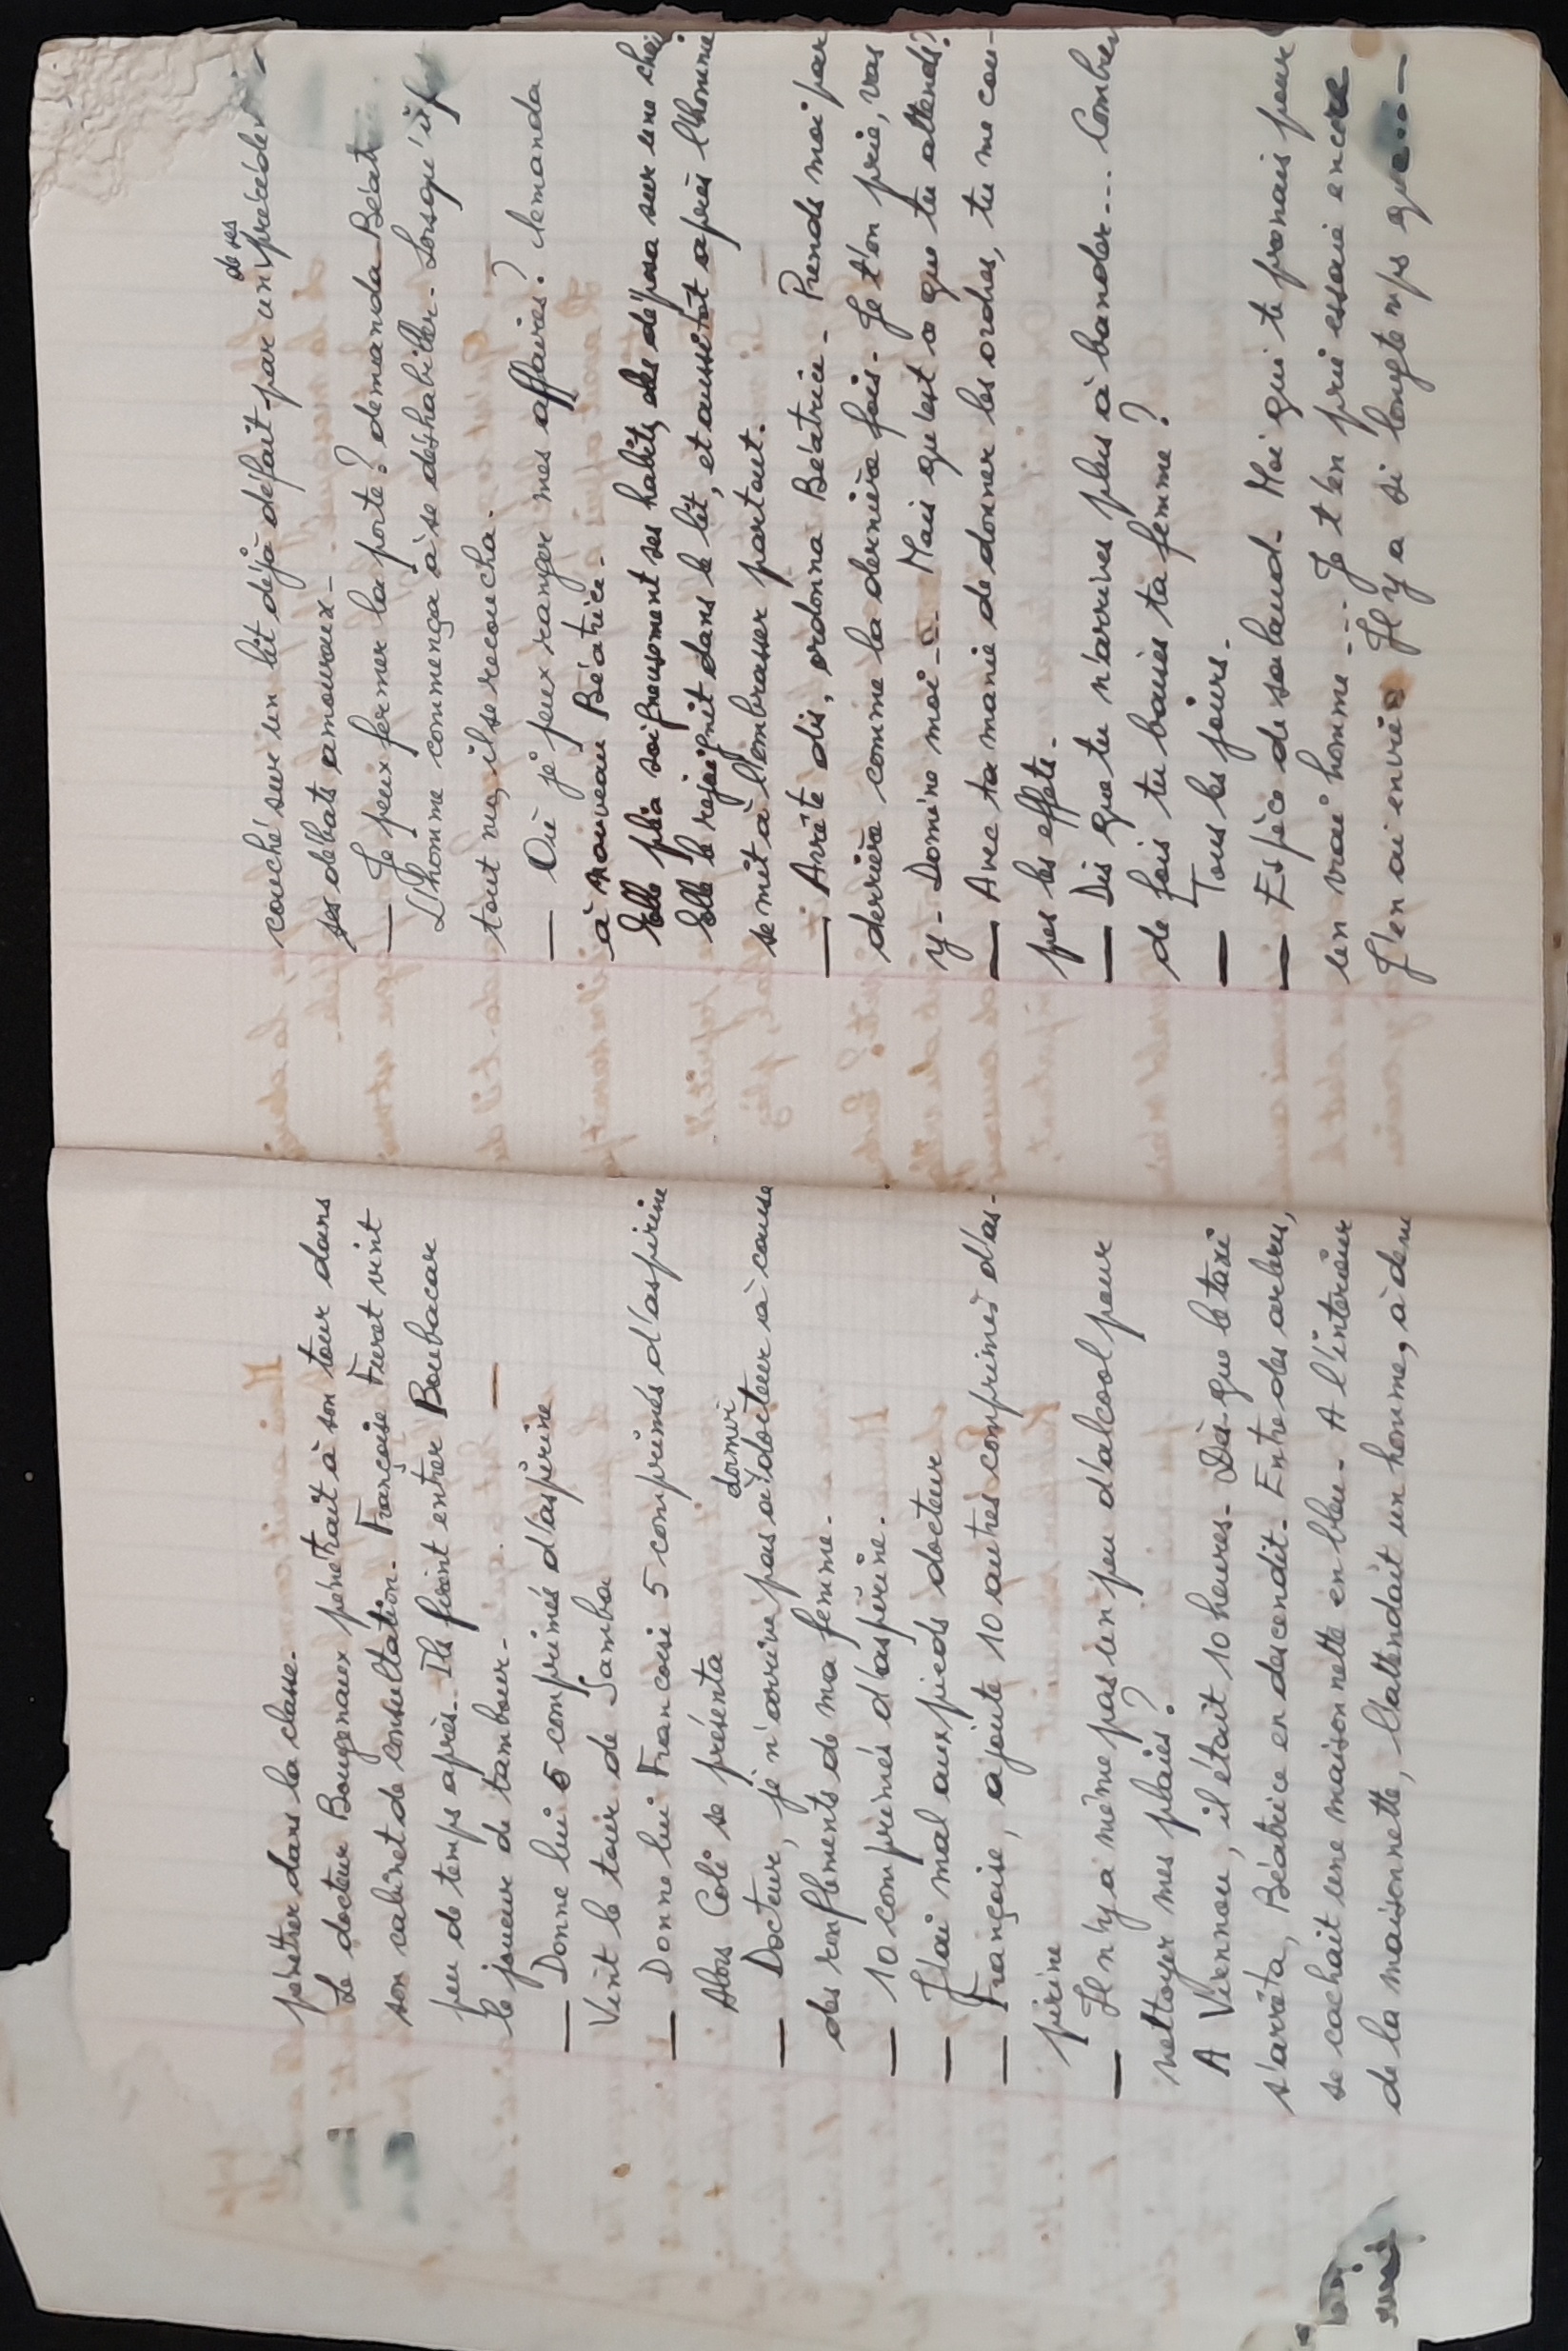 pénétrer dans la classe.
Le docteur Bougenaux pénétrait à son tour dans
son cabinet de consultation. Françoise Furet vint
peu de temps après. Ils firent entrer Boubacar
le joueur de tambour.
— Donne lui 5 comprimés d'aspirine
Vint le tour de Samba
— Donne lui Francoise 5 comprimés d'aspirine
Alors Coli se présenta
— Docteur, je n'arrive pas à dormir docteur à cause
des ronflements de ma femme.
— 10 comprimés d'aspirine.
— J'ai mal aux pieds docteur
— Françoise, ajoute 10 autres comprimés d'as-
pirine
— Il n'y a même pas un peu d'alcool pour
nettoyer mes plaies ?
A Viennou, il était 10 heures. Dès que le taxi
s'arrêta, Béatrice en descendit. Entre des arbres,
se cachait une maisonnette en bleu. A l'interieur
de la maisonnette, l'attendait un homme, à demi
couché sur un lit déjà défait par un de ses précédents
ses débats amoureux.
— Je peux fermer la porte ? demanda Béat
L'homme commença à se déshabiller. Lorsqu'il fut
tout nu, il se recoucha.
— Où je peux ranger mes affaires ? demanda
à nouveau Béatrice.
Elle plia soigneusement ses habits, les déposa sur une chai
Elle le rejoignit dans le lit, et aussitôt après l'homme
se mit à l'embrasser partout.
— Arrête dis, ordonna Béatrice. Prends moi par
derrière comme la dernière fois. Je t'en prie, vas
y. Domine moi... Mais qu'est ce que tu attends ?
— Avec ta manie de donner les ordres, tu me cou-
pes les effets.
— Dis que tu n'arrives plus à bander... Combien
de fois tu baises ta femme ?
— Tous les jours.
— Espèce de salaud. Moi qui te prenais pour
un vrai homme... Je t'en pri essaie encore
J'en ai envie. Il y a si longtemps que...